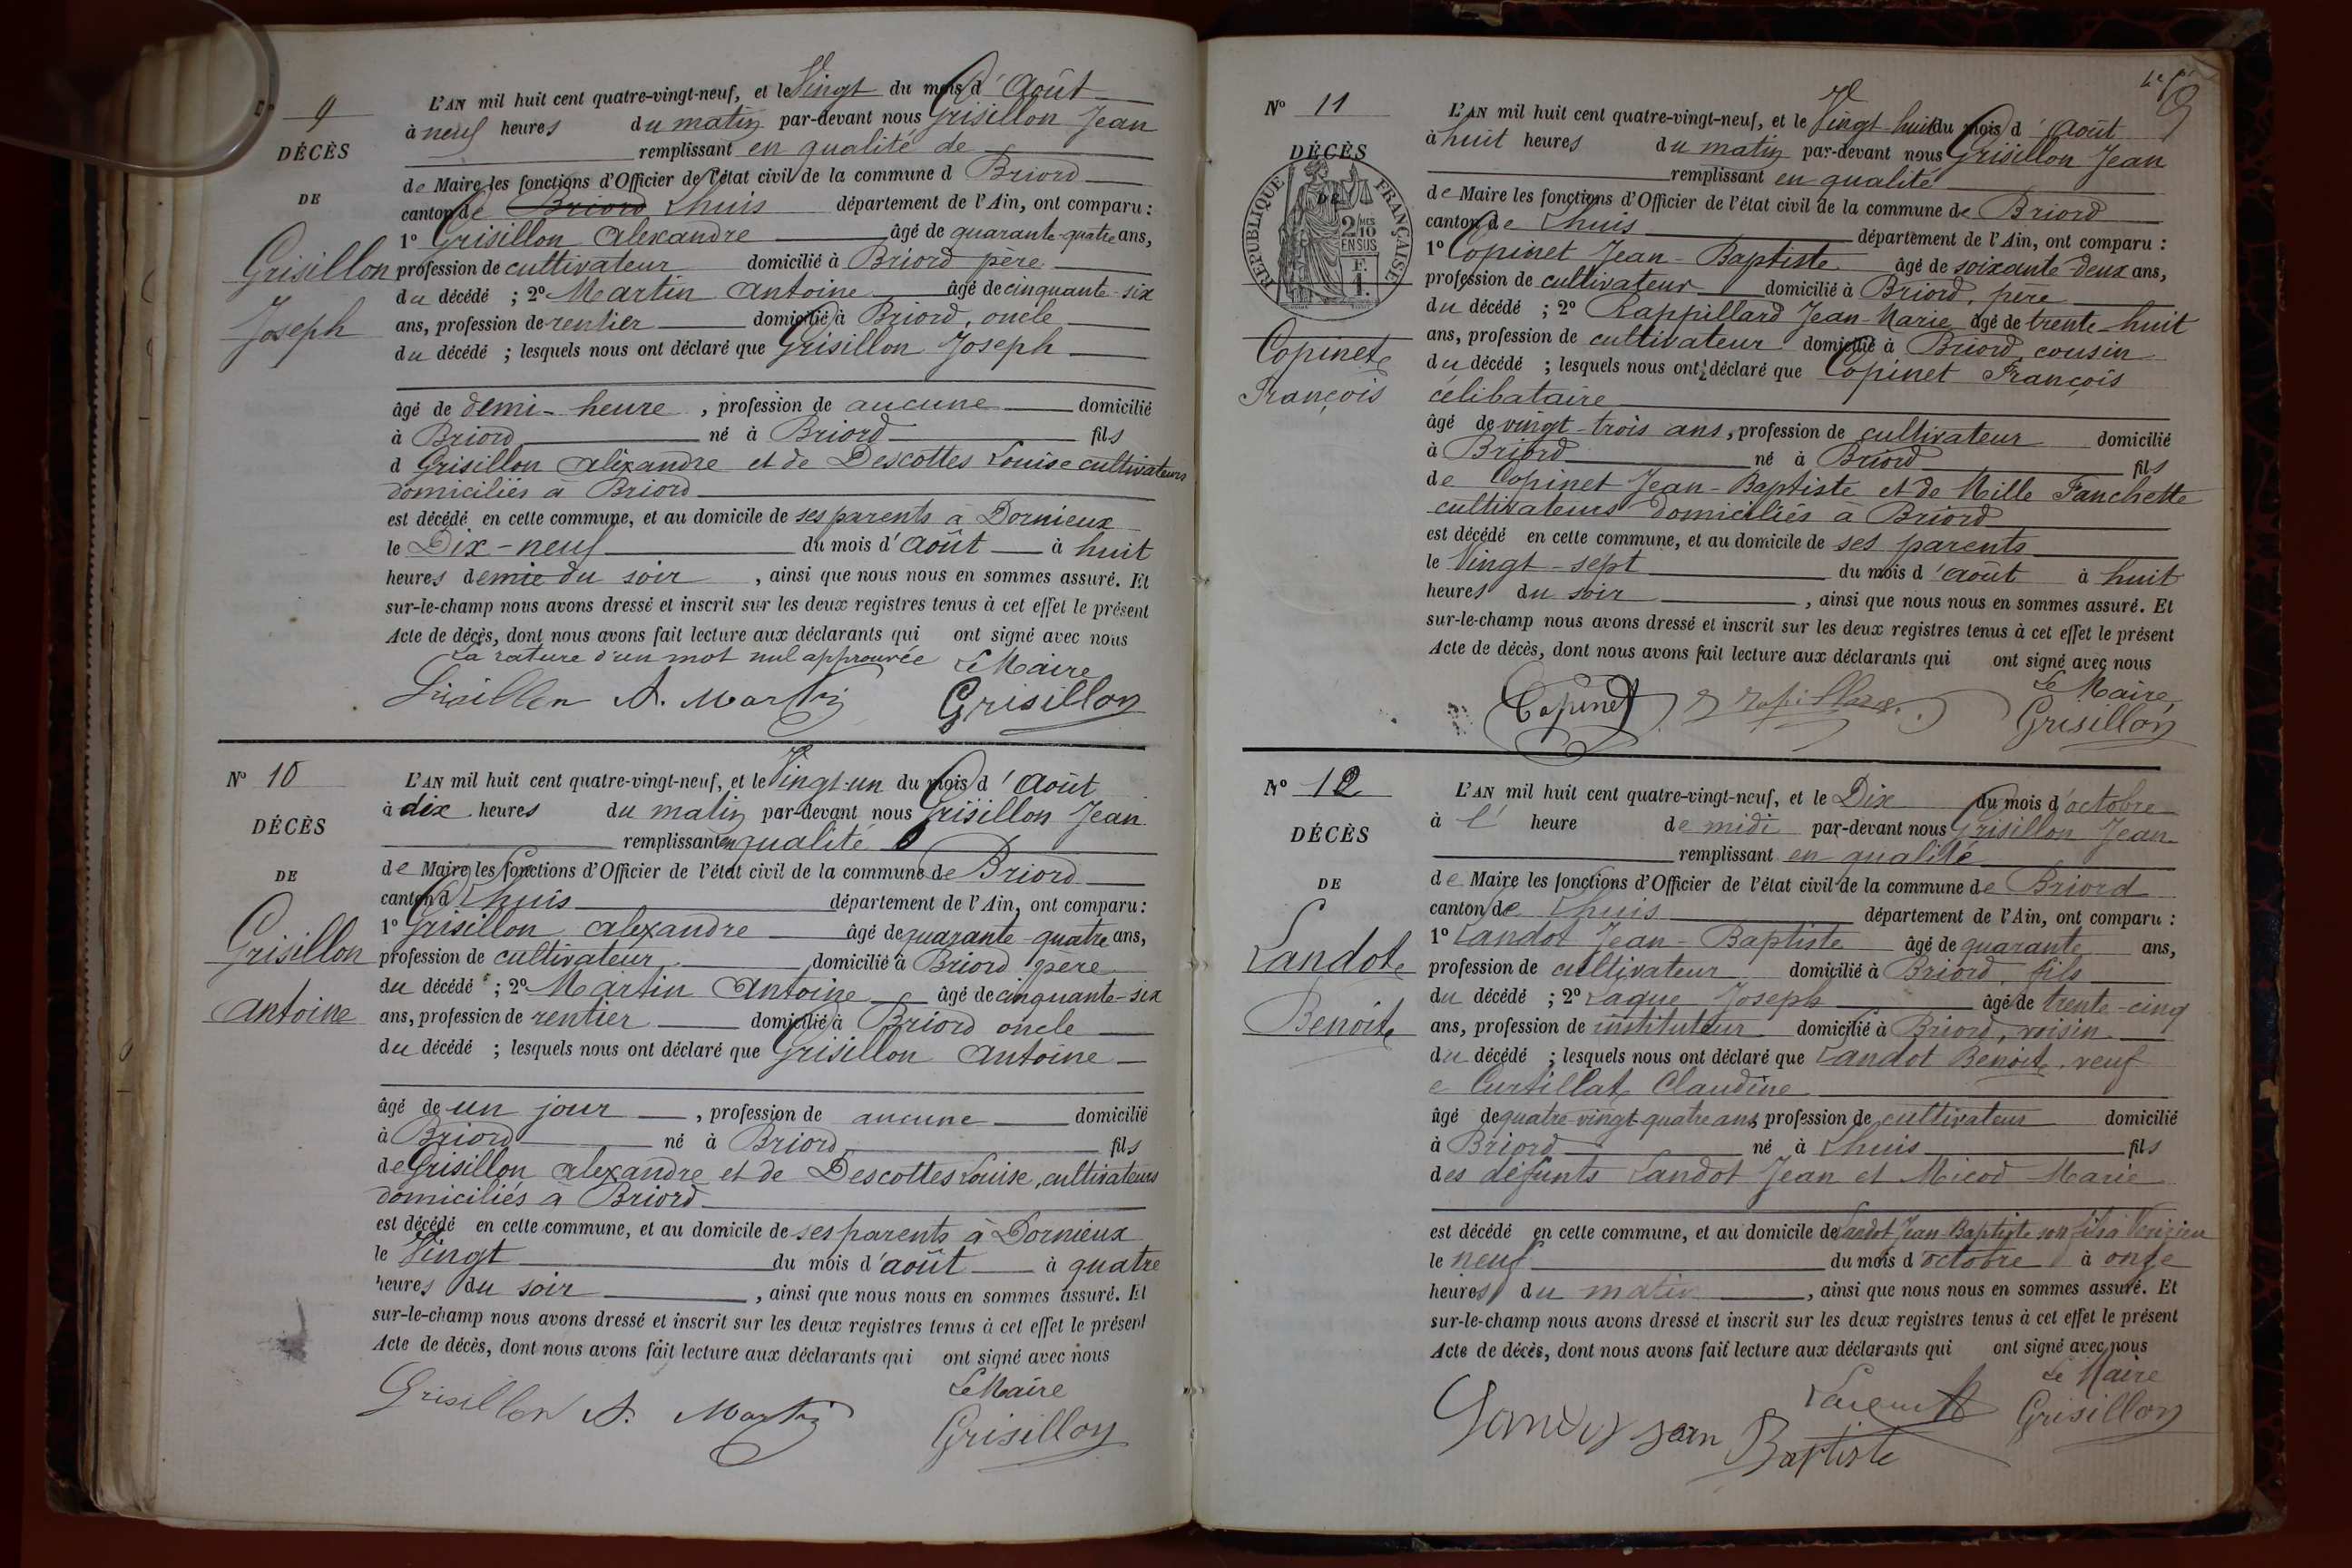 N° 9
DÉCÈS
DE
Grisillon
Joseph
L'AN mil huit cent quatre-vingt-neuf, et le Vingt du mois d'Août
à neuf heures du matin par-devant nous Grisillon Jean
remplissant en qualité de
de Maire les fonctions d'Officier de l'état civil de la commune d Briord
canton de Briord Lhuis département de l'Ain, ont comparu :
1° Grisillon Alexandre âgé de quarante-quatre ans,
profession de cultivateur domicilié à Briord père
du décédé ; 2° Martin Antoine âgé de cinquante-six
ans, profession de rentier domicilié à Briord, oncle
du décédé ; lesquels nous ont déclaré que Grisillon Joseph
âgé de demi-heure, profession de aucune domicilié
à Briord né à Briord fils
d Grisillon Alexandre et de Descottes Louise cultivateurs
domiciliés à Briord
est décédé en cette commune, et au domicile de ses parents à Dornieux
le Dix-neuf du mois d'Août à huit
heures demie du soir, ainsi que nous nous en sommes assuré. Et
sur-le-champ nous avons dressé et inscrit sur les deux registres tenus à cet effet le présent
Acte de décès, dont nous avons fait lecture aux déclarants qui ont signé avec nous
La rature d'un mot nul approuvée Le Maire
Grisillon A. Martin Grisillon
N° 10
DÉCÈS
DE
Grisillon
Antoine
L'AN mil huit cent quatre-vingt-neuf, et le Vingt-un du mois d'Août
à dix heures du matin par-devant nous Grisillon Jean
remplissant en qualité
de Maire les fonctions d'Officier de l'état civil de la commune de Briord
canton d Lhuis département de l'Ain, ont comparu :
1° Grisillon Alexandre âgé de quarante-quatre ans,
profession de cultivateur domicilié à Briord père
du décédé ; 2° Martin Antoine âgé de cinquante-six
ans, profession de rentier domicilié à Briord oncle
du décédé ; lesquels nous ont déclaré que Grisillon Antoine
âgé de un jour, profession de aucune domicilié
à Briord né à Briord fils
de Grisillon Alexandre et de Descottes Louise, cultivateurs
domiciliés à Briord
est décédé en cette commune, et au domicile de ses parents à Dornieux
le Vingt du mois d'août à quatre
heures du soir, ainsi que nous nous en sommes assuré. Et
sur-le-champ nous avons dressé et inscrit sur les deux registres tenus à cet effet le présent
Acte de décès, dont nous avons fait lecture aux déclarants qui ont signé avec nous
Le Maire
Grisillon A. Martin Grisillon
N° 11
DÉCÈS
DE
RÉPUBLIQUE FRANÇAISE
2/10 MES
EN SUS
F.
1.
Copinet
François
L'AN mil huit cent quatre-vingt-neuf, et le Vingt-huit du mois d'Août
à huit heures du matin par-devant nous Grisillon Jean
remplissant en qualité
de Maire les fonctions d'Officier de l'état civil de la commune de Briord
canton de Lhuis département de l'Ain, ont comparu :
1° Copinet Jean-Baptiste âgé de soixante-deux ans,
profession de cultivateur domicilié à Briord, père
du décédé ; 2° Rappillard Jean-Marie âgé de trente-huit
ans, profession de cultivateur domicilié à Briord, cousin
du décédé ; lesquels nous ont déclaré que Copinet François
célibataire
âgé de vingt-trois ans, profession de cultivateur domicilié
à Briord né à Briord fils
de Copinet Jean-Baptiste et de Mille Fanchette
cultivateurs domiciliés à Briord
est décédé en cette commune, et au domicile de ses parents
le Vingt-sept du mois d'août à huit
heures du soir, ainsi que nous nous en sommes assuré. Et
sur-le-champ nous avons dressé et inscrit sur les deux registres tenus à cet effet le présent
Acte de décès, dont nous avons fait lecture aux déclarants qui ont signé avec nous
Le Maire,
Copinet Grisillon
N° 12
DÉCÈS
DE
Landot
Benoit
L'AN mil huit cent quatre-vingt-neuf, et le Dix du mois d'octobre
à l' heure de midi par-devant nous Grisillon Jean
remplissant en qualité
de Maire les fonctions d'Officier de l'état civil de la commune de Briord
canton de Lhuis département de l'Ain, ont comparu :
1° Landot Jean-Baptiste âgé de quarante ans,
profession de cultivateur domicilié à Briord, fils
du décédé ; 2° Laque Joseph âgé de trente-cinq
ans, profession de instituteur domicilié à Briord, voisin
du décédé ; lesquels nous ont déclaré que Landot Benoit, veuf
e Curtillat Claudine
âgé de quatre-vingt-quatre ans profession de cultivateur domicilié
à Briord né à Lhuis fils
des défunts Landot Jean et Micod Marie
est décédé en cette commune, et au domicile de Landot Jean-Baptiste son fils à
le neuf du mois d'octobre à onze
heures du matin, ainsi que nous nous en sommes assuré. Et
sur-le-champ nous avons dressé et inscrit sur les deux registres tenus à cet effet le présent
Acte de décès, dont nous avons fait lecture aux déclarants qui ont signé avec nous
Le Maire
Grisillon
Jean Baptiste